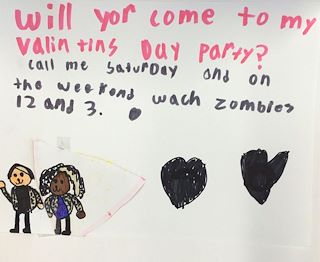 Will yor come to my
Valintins Day Party?
call me Saturday and on
the weekend wach zombies
12 and 3.